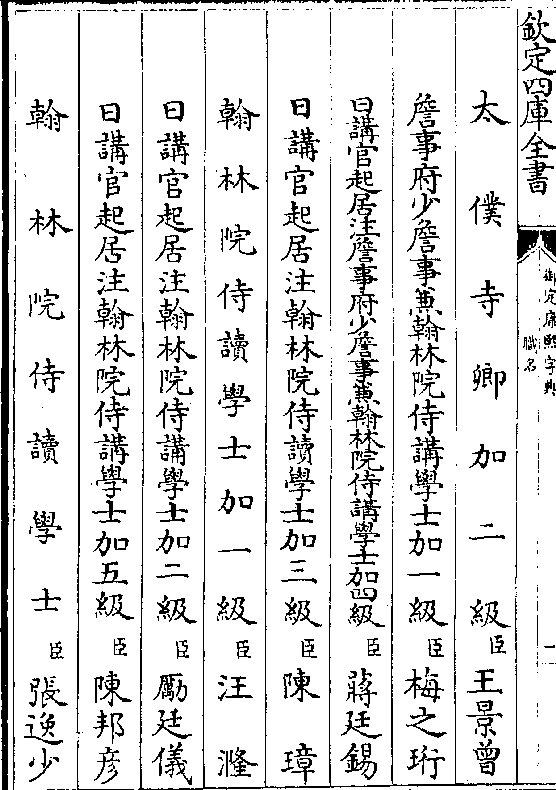 欽定四庫全書
御定康熙字典
職名
一
太僕寺卿加二級臣王景曾
詹事府少詹事兼翰林院侍講學士加一級臣梅之珩
日講官起居注詹事府少詹事兼翰林院侍講學士加四級臣蔣廷錫
日講官起居注翰林院侍讀學士加三級臣陳璋
翰林院侍讀學士加一級臣汪漋
日講官起居注翰林院侍講學士加二級臣勵廷儀
日講官起居注翰林院侍講學士加五級臣陳邦彥
翰林院侍讀學士臣張逸少